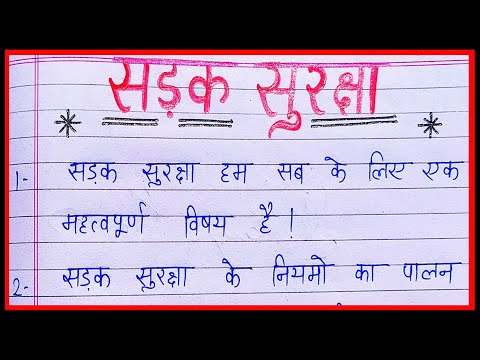 सड़क सुरक्षा
1- सड़क सुरक्षा हम सब के लिए एक
महत्वपूर्ण विषय है !
2- सड़क सुरक्षा के नियमो का पालन